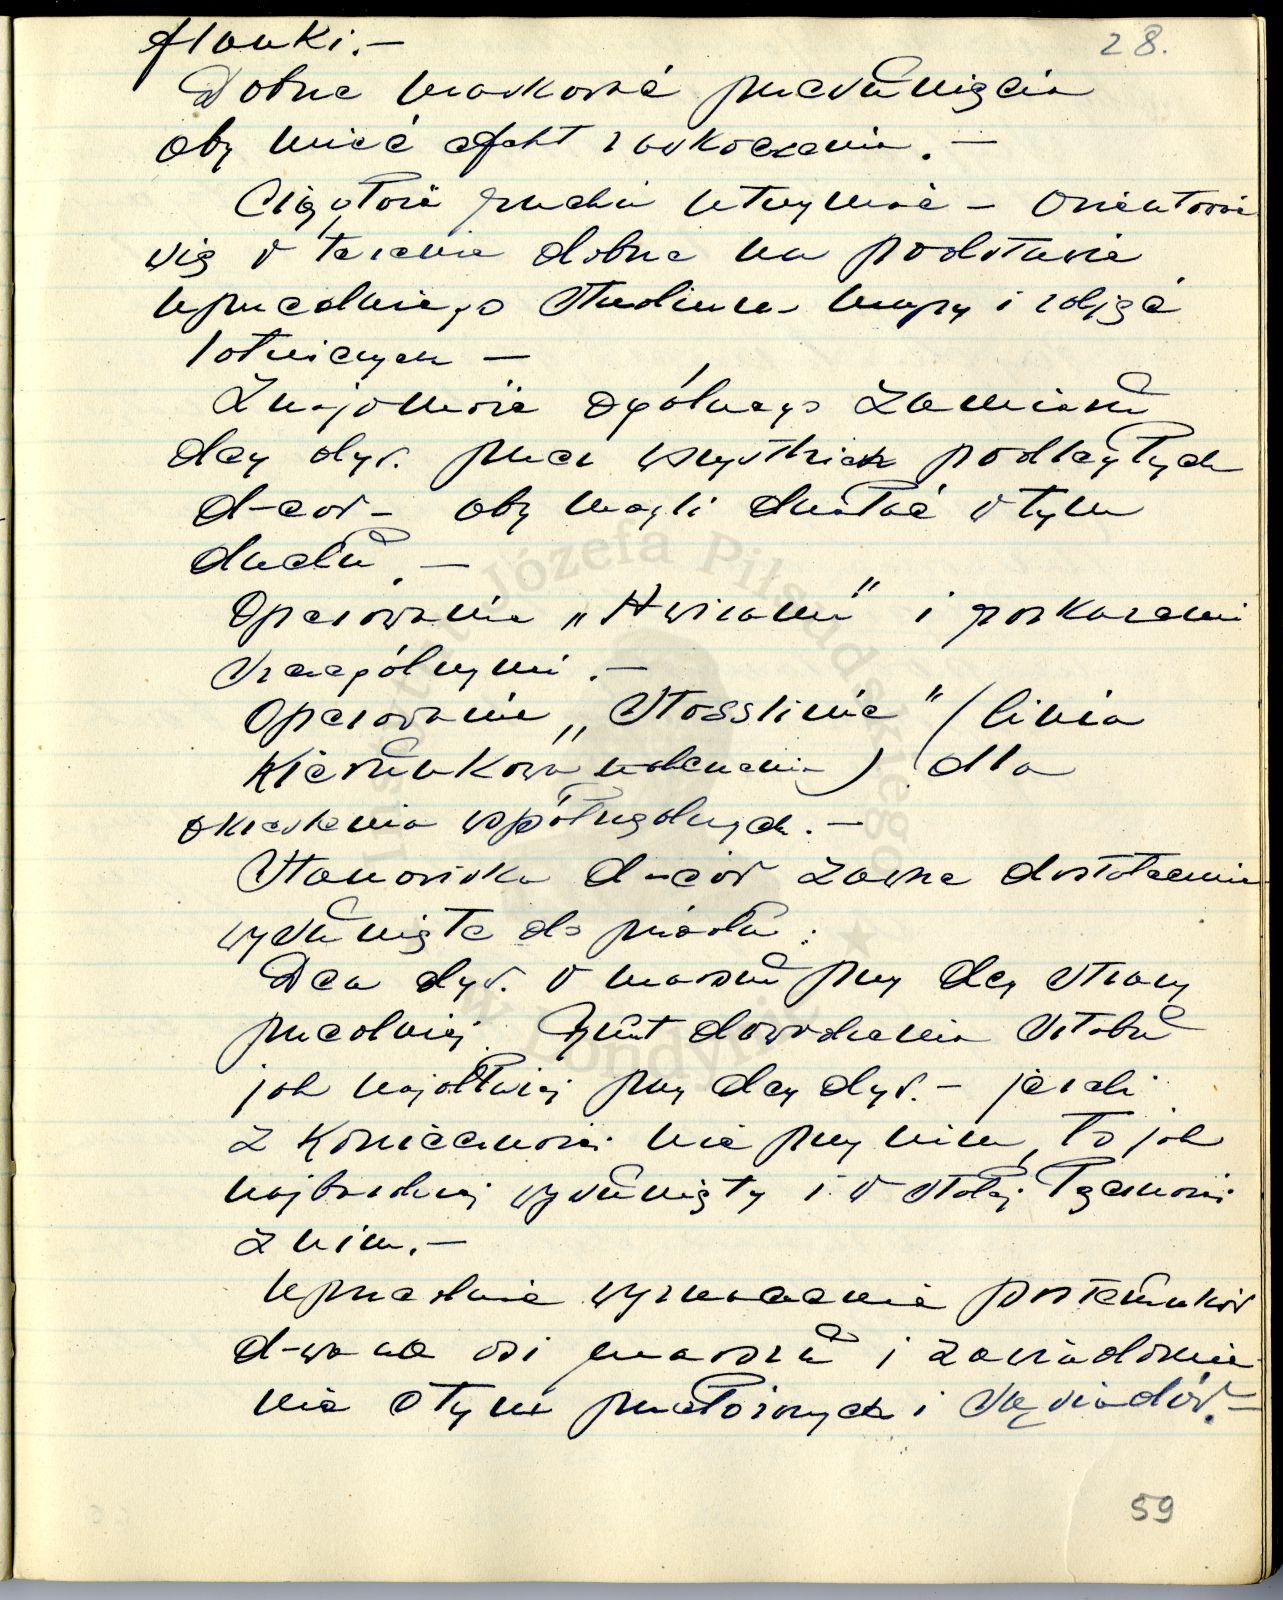 28.
flanki. —
Dobrze maskować przesunięcia
aby mieć efekt zaskoczenia. —
Ciągłość ruchu utrzymać — Orientować
się w terenie dobrze na podstawie
uprzedniego studium mapy i zdjęć
lotniczych —
Znajomość ogólnego zamiaru
dcy dyw. przez wszystkich podległych
d-ców — aby mogli działać w tym
duchu. —
Operowanie „ i rozkazami
szczególnymi. —
Operowanie „Stosslinie" (linia
kierunkowa natarcia) dla
określenia współrzędnych. —
Stanowiska d-ców zawsze dostatecznie
wysunięte do przodu.
Dca dyw. w marszu przy dcy straży
przedniej. Rzut dowodzenia sztabu
jak najbliżej przy dcy dyw. — jeżeli
z konieczności nie przy nim, to jak
najbardziej wysunięty i w stałej łączności
z nim. —
Uprzednie wyznaczenie posterunków
d-wa na osi marszu i zawiadomie-
nie o tym przełożonych i sąsiadów. —
59
Instytut Józefa Piłsudskiego w Londynie